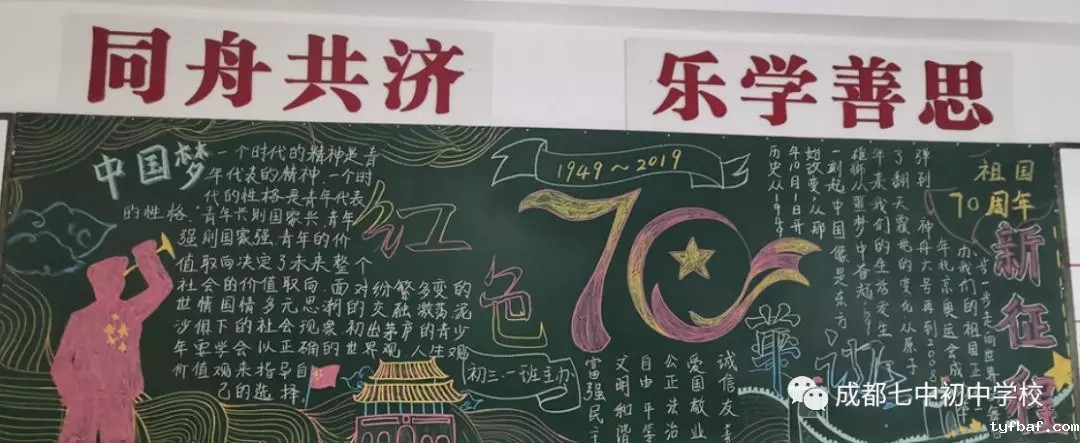 同舟共济
乐学善思
中国梦
一个时代的精神是青
年代表的精神,一个时
代的性格是青年代表
的性格.青年兴则国家兴,青年
强则国家强.青年的价
值取向决定了未来整个
社会的价值取向.面对纷繁多变的
世情国情多元思潮的交融激荡,泥
沙俱下的社会现象,初出茅庐的青少
年要学会以正确的世界观,人生观
价值观来指导自
己的选择.
红色
1949~2019
70
初三.一班主办
富强民主
文明和谐
自由平等
公正法治
爱国敬业
诚信友善
华诞
祖国
70周年
新征程
历史从194
年10月1日开
始改变,从那
一刻起,中国像是东方
雄狮从噩梦中奋起,69
年来我们的生活发生
了翻天覆地的变化从原子
弹到
神舟六号再到2008
年北京奥运会成
功我们的祖国正
一步一步走向世界
成都七中初中学校
tyfbaf.com